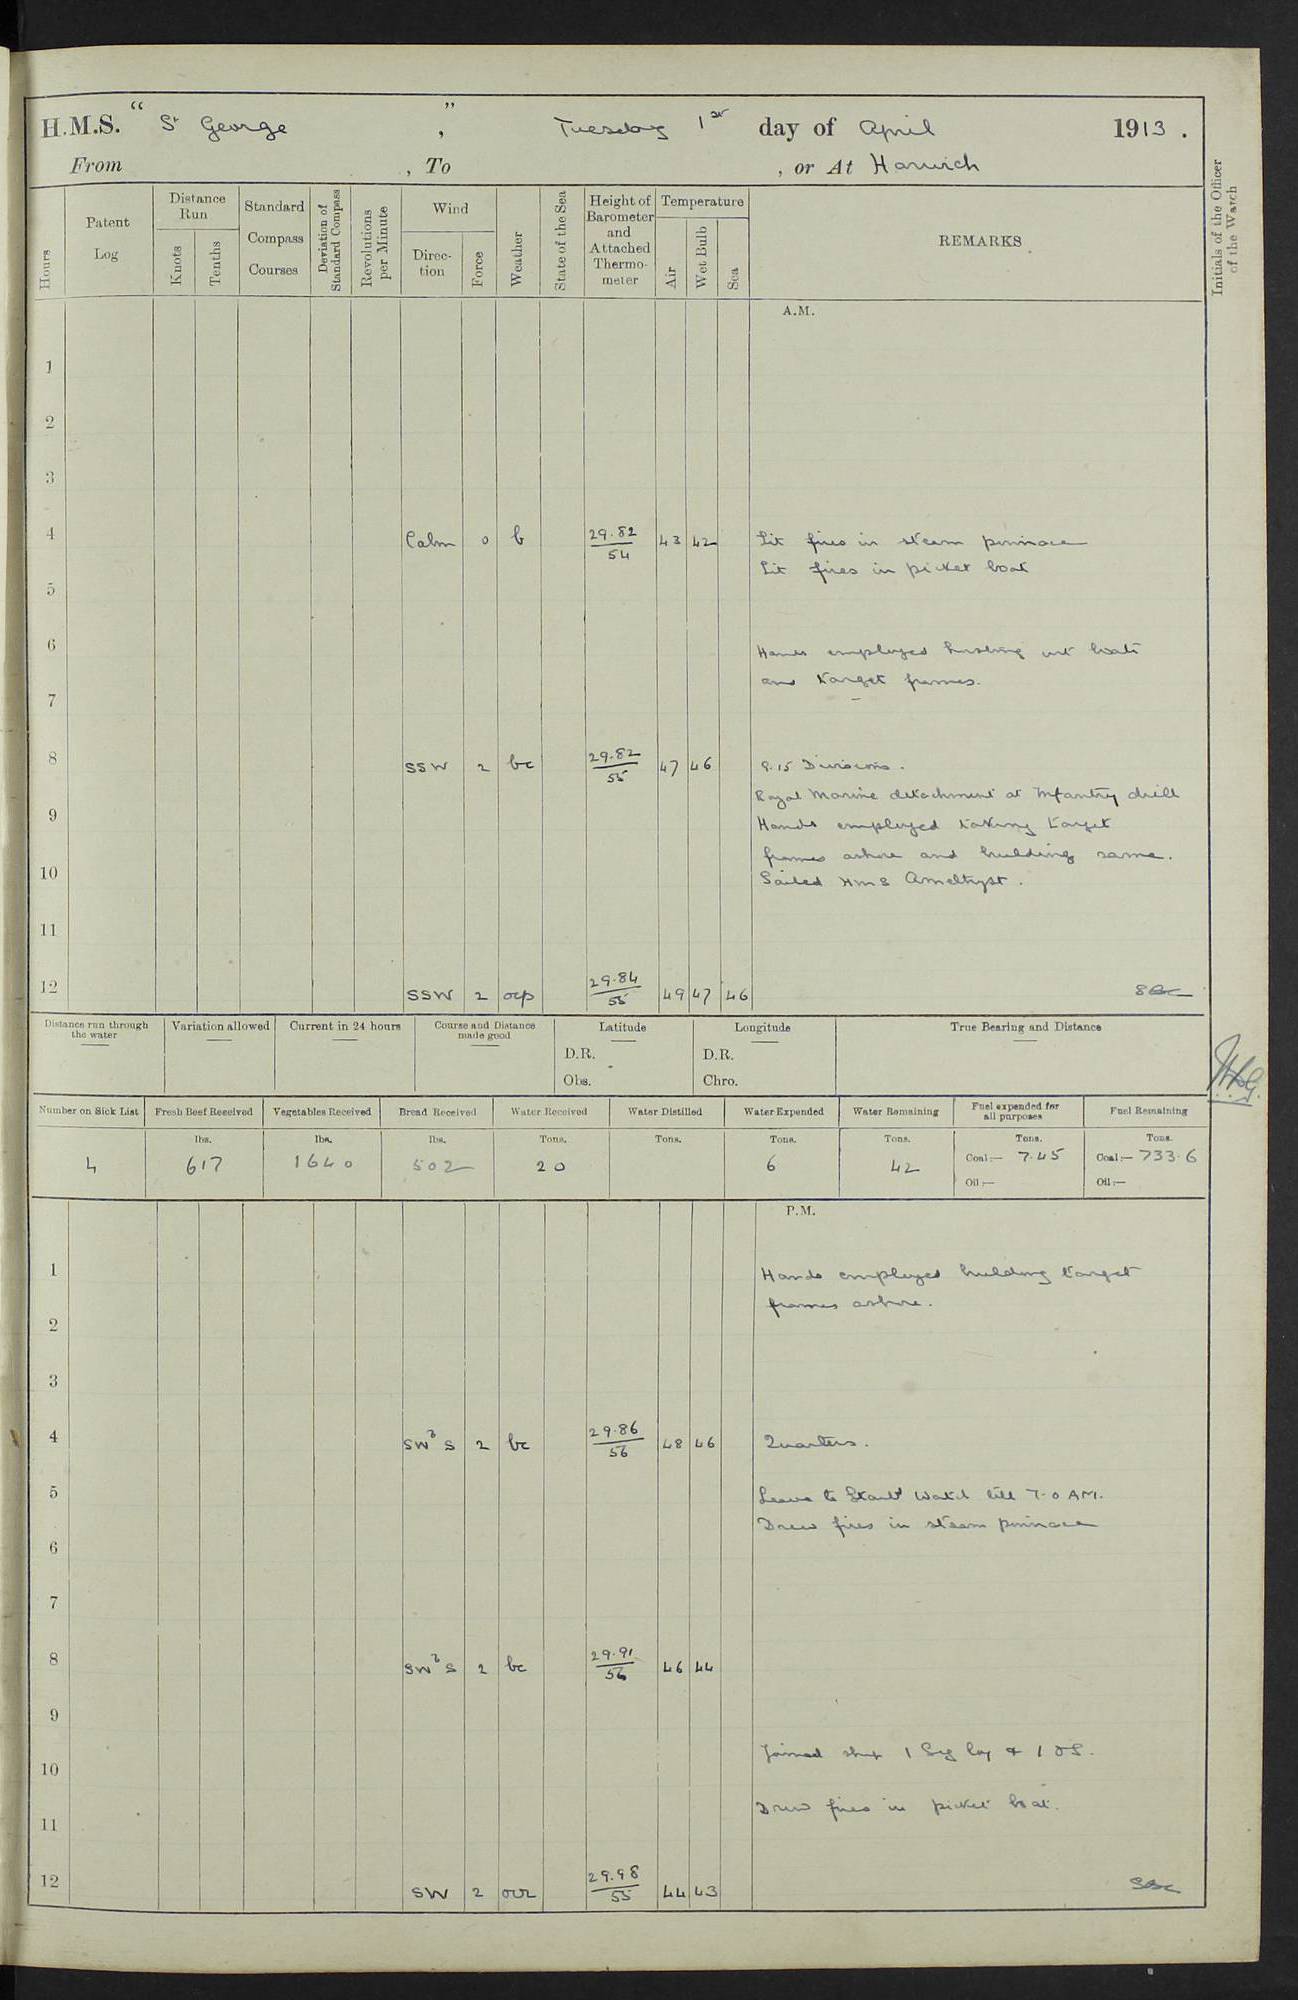 H.M.S. " St George ", Tuesday 1st day of April 1913.
From , To , or At Harwich
Hours
Patent Log
Distance Run
Knots
Tenths
Standard Compass Courses
Deviation of Standard Compass
Revolutions per Minute
Wind
Direction
Force
Weather
State of the Sea
Height of Barometer and Attached Thermometer
Temperature
Air
Wet Bulb
Sea
REMARKS
Initials of the Officer of the Watch
A.M.
1
2
3
4 Calm 0 b 29.82/54 43 42 Lit fires in steam pinnace
Lit fires in picket boat
5
6 Hands employed hoisting out boats
and target frames.
7
8 SSW 2 bc 29.82/55 47 46 9.15 Divisions.
Royal Marine detachment at Infantry drill
9 Hands employed taking target
frames ashore and building same.
10 Sailed HMS Amethyst.
11
12 SSW 2 ocp 29.84/55 49 47 46
Distance run through the water
Variation allowed
Current in 24 hours
Course and Distance made good
Latitude
D.R.
Obs.
Longitude
D.R.
Chro.
True Bearing and Distance
Number on Sick List
Fresh Beef Received
Vegetables Received
Bread Received
Water Received
Water Distilled
Water Expended
Water Remaining
Fuel expended for all purposes
Fuel Remaining
lbs. lbs. lbs. Tons. Tons. Tons. Tons. Tons. Tons.
4 617 1640 502 20 6 42 Coal:— 7.45 Coal:— 733.6
Oil:— Oil:—
P.M.
1 Hands employed building target
frames ashore.
2
3
4 SWbS 2 bc 29.86/56 48 46 Quarters.
5 Leave to Starbd Watch till 7-0 AM.
Drew fires in steam pinnace
6
7
8 SWbS 2 bc 29.91/56 46 44
9
Joined ship 1 Sig boy & 1 OS.
10
Drew fires in picket boat.
11
12 SW 2 29.98/55 44 43